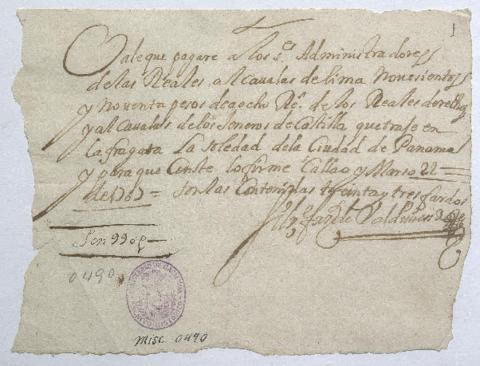 1
Vale que pagare a los s.es Administradores
de las Reales alcavalas de Lima Novecientos
y noventa pesos de a ocho R.s de los Reales derechos
y alcavalas de los Jeneros de Castilla que traje en
la fragata la Soledad de la Ciudad de Panama
y para que Conste lo firme Callao y Marzo 22
de 1767 = Son las treinta y tres fardos
Son 990 p
0490
Misc. 0490